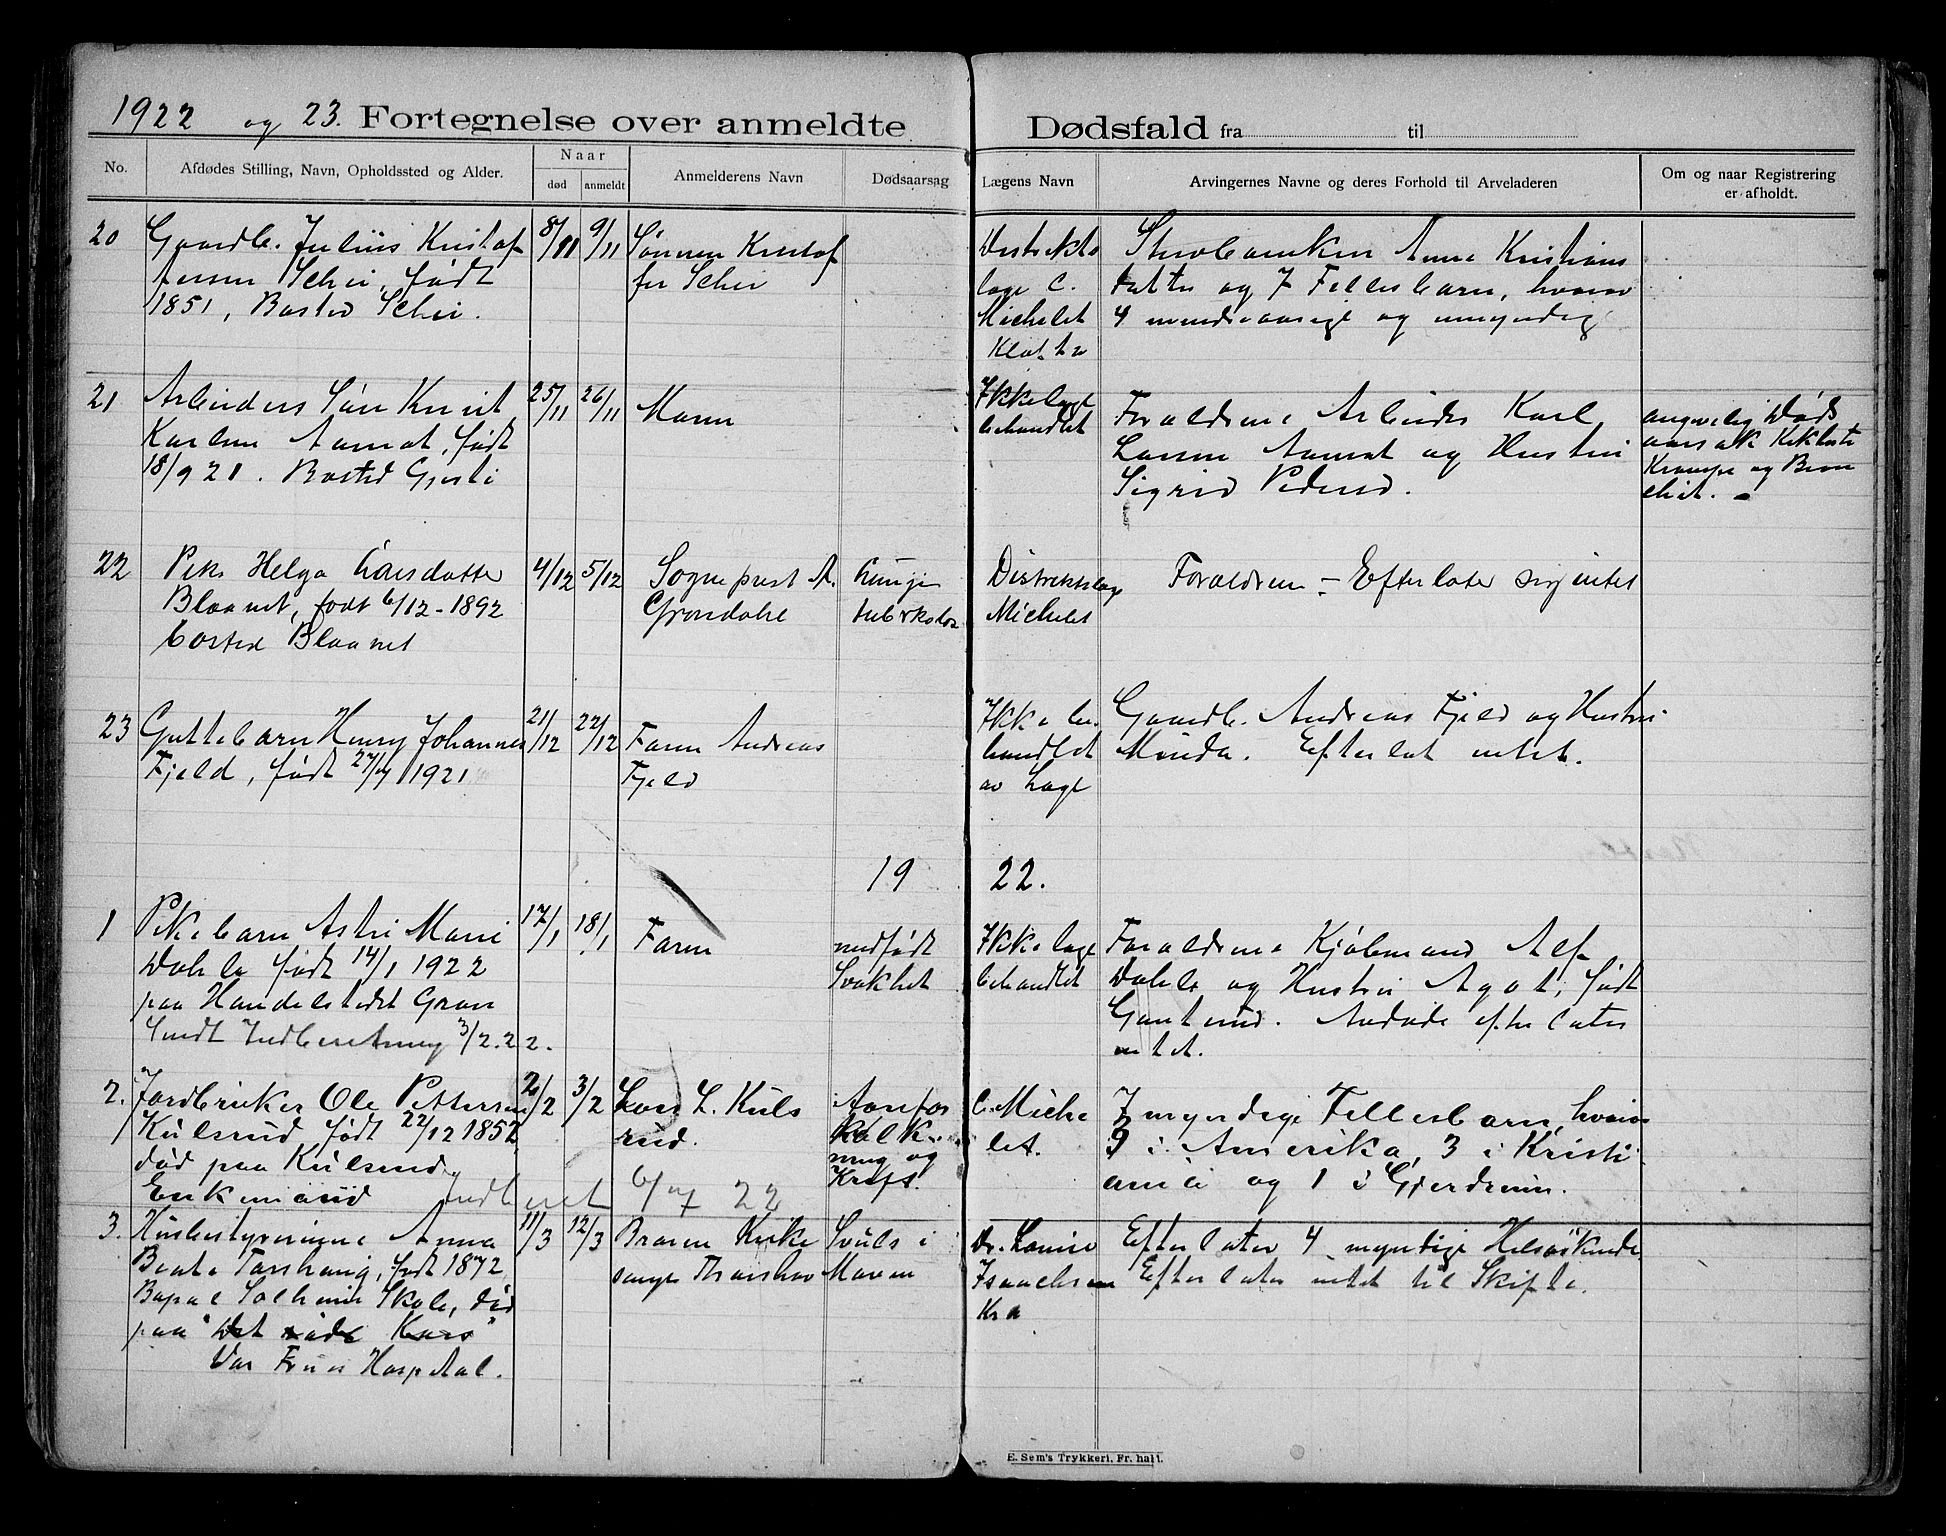 1922 og 23. Fortegnelse over anmeldte Dødsfald fra til
No.
Afdødes Stilling, Navn, Opholdssted og Alder.
Naar
død anmeldt
Anmelderens Navn
Dødsaarsag
Lægens Navn
Arvingernes Navne og deres Forhold til Arveladeren
Om og naar Registrering
er afholdt.
20
Gaardb. Julius Kristof
fersen Schei, født
1851, Bosted Schei.
8/11
9/11
Sønnen Kristof
fer Schei
Distrikts
læge C.
Michelet
Enken Anne Kristians
datter og 7 Fellesbarn, hvorav
4 mindreaarige og umyndig
21
Arbeiders Søn Knut
Karlsen Aamot, født
18/9 21. Bosted Gjesti
25/11
26/11
Moren
Ikke læge
behandlet
Forældrene Arbeider Karl
Larsen Aamot og Hustru
Sigrid Pedersd.
angivelig Døds
aarsak Kikhoste
Krampe og Bron
chit.
22
Pike Helga Larsdatter
Blaavet, født 6/12-1892
bosted Blaavet
4/12
5/12
Sogneprest A.
Grøndahl
Lunge
tuberkulose
Distriktslæge
Michelet
Forældrene - Efterlater sig intet
23
Guttebarn Henry Johannes
Fjeld, født 1921
21/12
22/12
Faren Andreas
Fjeld
Ikke be
handlet
av Læge
Gaardb. Andreas Fjeld og Hustru
Minda. Efterlat intet.
19 22.
1
Pikebarn Astri Marie
Dahle født 14/1 1922
paa Handelstedet Gran
Sendt Indberetning 3/2.22.
17/1
18/1
Faren
medfødt
Svakhet
Ikke læge
behandlet
Forældrene Kjøbmand Alf
Dahle og Hustru Agot, født
Avdøde efterlater
intet.
2.
Jordbruker Ole Pettersen
Kulsrud, født 22/12 1852
død paa Kulsrud,
Enkemand Indberet 22
2/2
3/2
Lars L. Kuls
rud.
Aarefor
kalk-
ning og
Kreft.
C. Miche
let.
7 myndige Fellesbarn, hvorav
3 i Amerika, 3 i Kristi
ania og 1 i Gjerdrum.
3.
Husbestyrerinne Anna
Beate Torshaug, født 1872
Bopæl Solheim Skole, død
paa "Det røde Kors"
Vor Frues Hospital.
11/3
12/3
Broren Kirke
sanger Thorshov
Svuls i
Maven
Dr. Louise
Isaachsen
Kra
Efterlater 4 myndige Helsøskende
Efterlater intet til Skifte.
E. Sem's Trykkeri, Fr.hald.